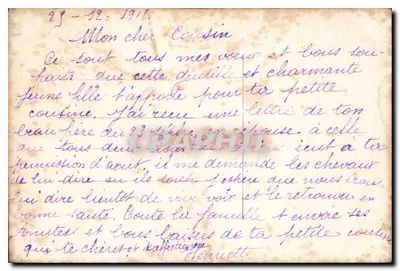 29-12-1918
Mon cher Cousin
Ce sont tous mes vœux et bons sou-
haits que cette gentille et charmante
jeune fille t'apporte pour ta petite
cousine. J'ai reçu une lettre de ton
beau père du 23 réponse à celle
que tous deux avons écrit à ta
permission d'août, il me demande les chevaux
de lui dire où ils sont. J'espère que nous irons
lui dire bientôt de vive voix et le retrouver en
bonne santé. Toute la famille t'envoie ses
amitiés et bons baisers de ta petite cousine
qui te chérit et
Henriette